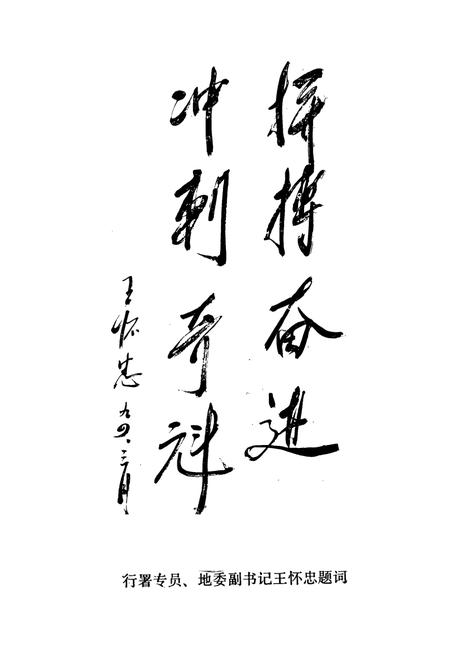 拼搏奋进
冲刺夺魁
王怀忠 九四、三月
行署专员、地委副书记王怀忠题词